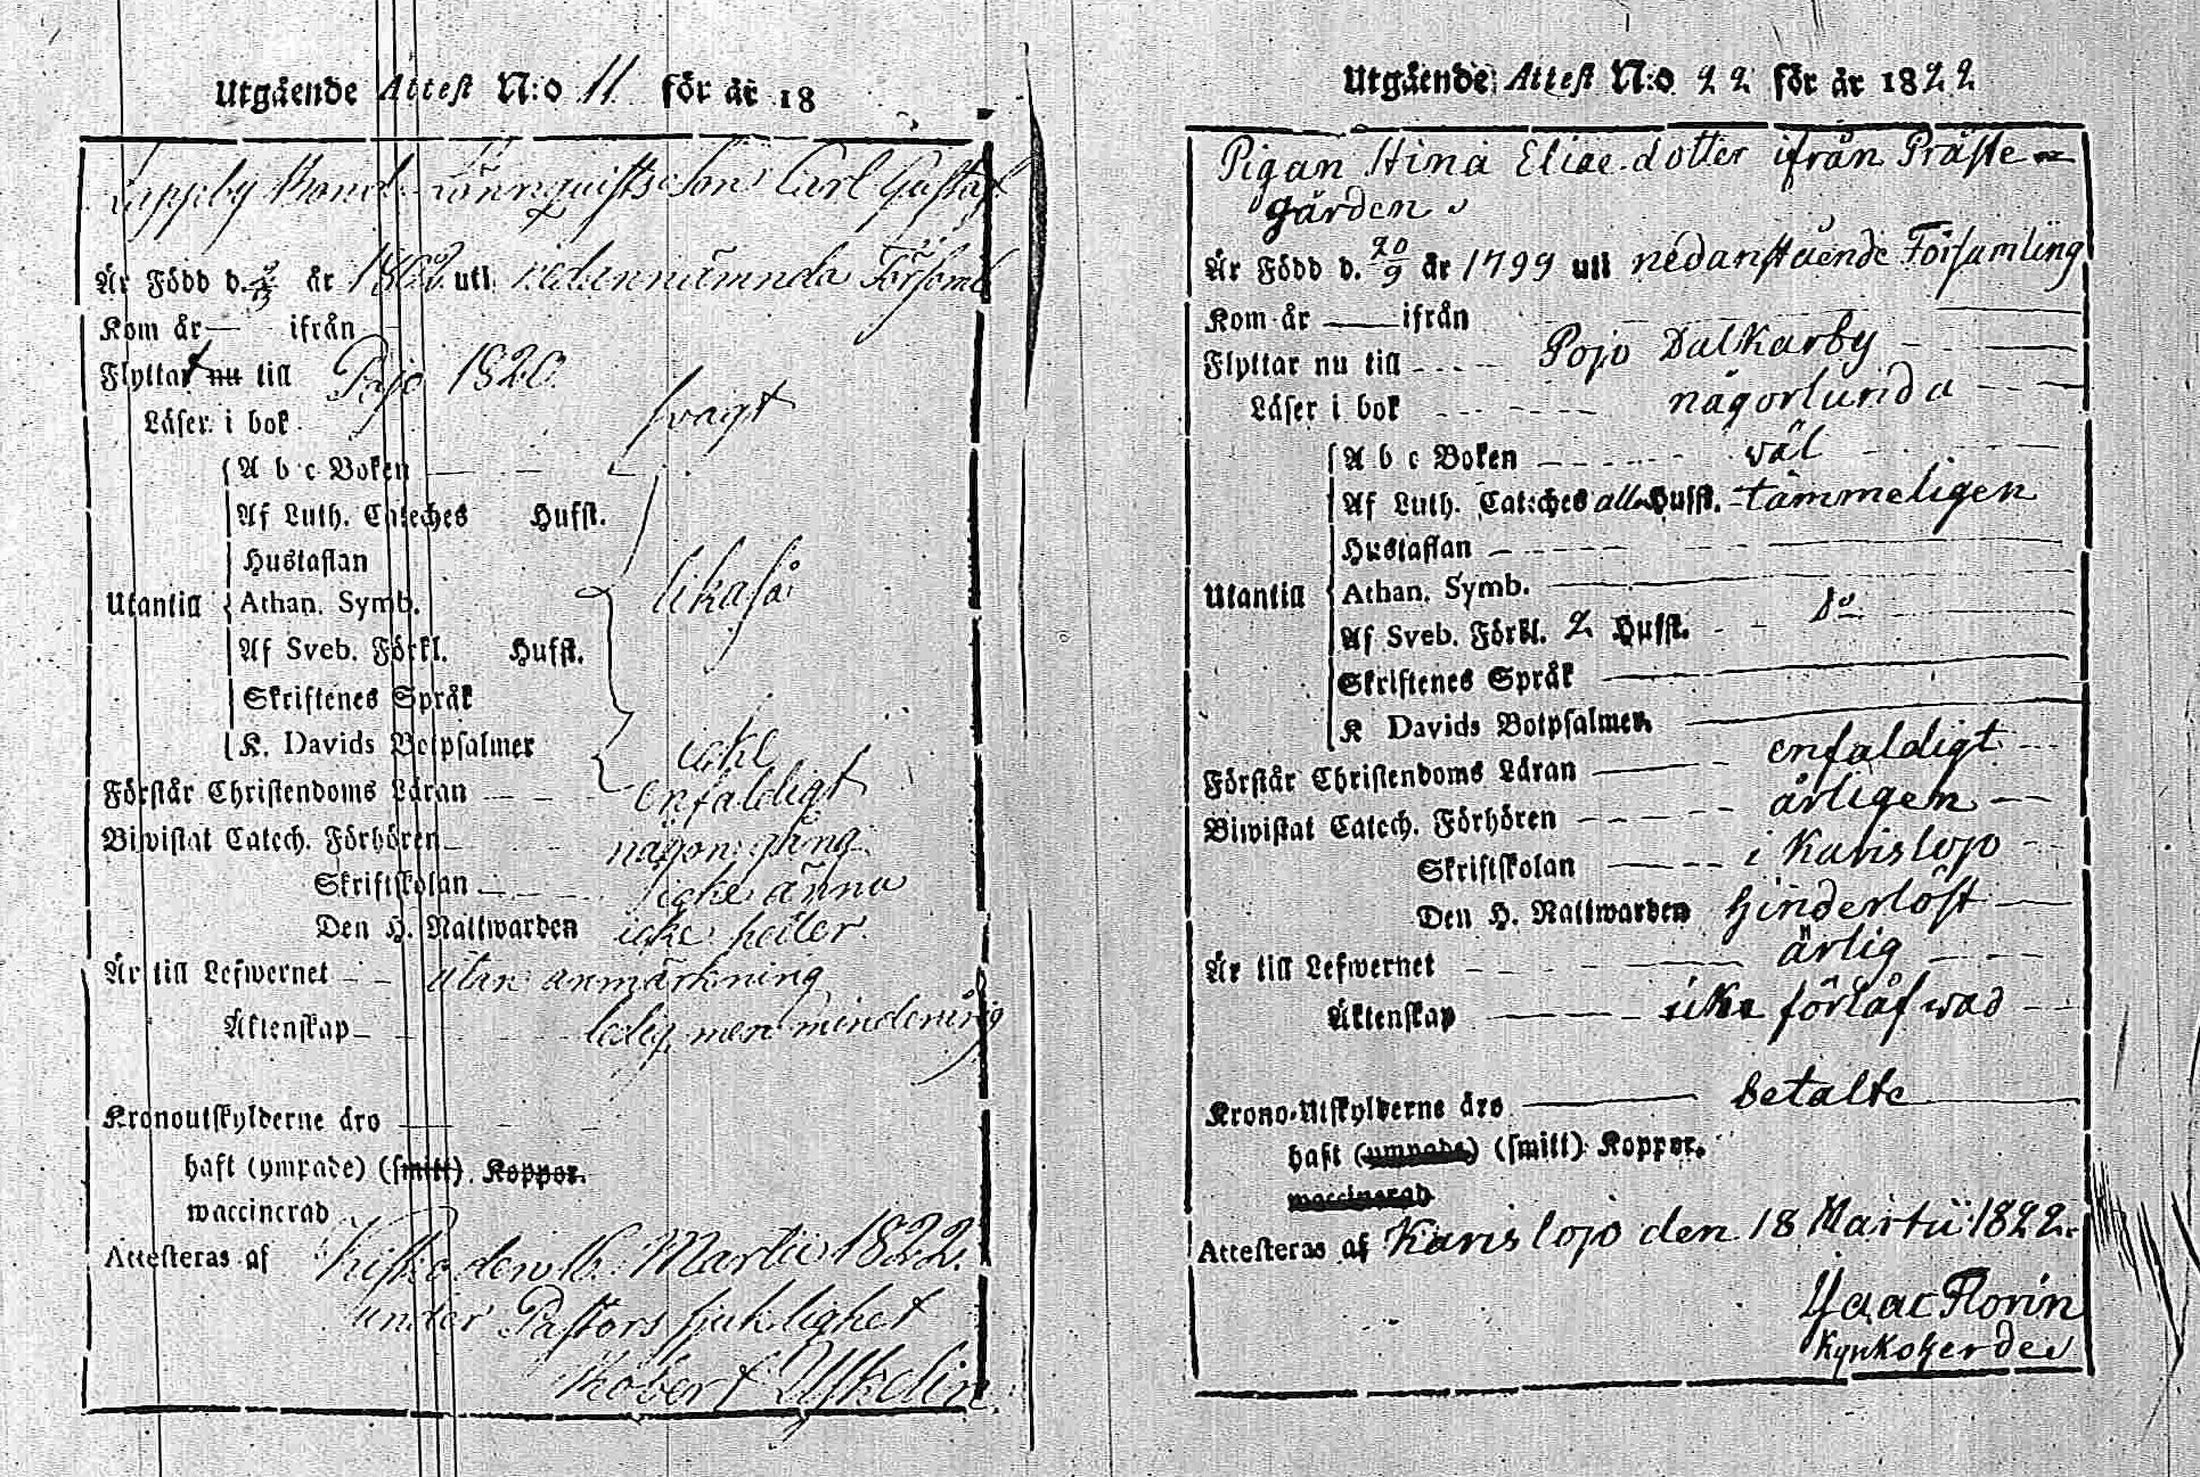 Utgående Attest N:o 11 för år 18
Carl Gustaf
Är Född d. år uti nedannämnda Församl
Kom år — ifrån
Flyttat nu till Pojo 1820.
Läser i bok svagt
A b c Boken
Af Luth. Cateches Hufst.
Hustaflan
Utantill Athan. Symb. likaså
Af Sveb. Förkl. Hufst.
Skriftenes Språk
K. Davids Botpsalmer icke
Förstår Christendoms Läran enfaldigt
Biwistat Catech. Förhören någon gång
Skriftskolan icke ännu
Den H. Nattwarden icke heller
Är till Lefwernet utan anmärkning
Äktenskap ledig, men minderårig
Kronoutskylderne äro
haft (ympade) (smitt). Koppor.
waccinerad
Attesteras af Kisko den 16. Martii 1822.
under Pastors sjuklighet
Robert
Utgående Attest N:o 22 för år 1822
Pigan Hina Eliae dotter ifrån Präste-
gården
Är Född d. 20/9 år 1799 uti nedanstående Församling
Kom år — ifrån
Flyttar nu till Pojo Dalkarby
Läser i bok någorlunda
A b c Boken väl
Af Luth. Cateches alla Hufst. tämmeligen
Hustaflan
Utantill Athan. Symb.
Af Sveb. Förkl. 2 Hufst. do
Skriftenes Språk
K Davids Botpsalmer
Förstår Christendoms Läran enfaldigt
Biwistat Catech. Förhören årligen
Skriftskolan i Karislojo
Den H. Nattwarden hinderlöst
Är till Lefwernet ärlig
Äktenskap icke förlåfwad
Krono-Utskylderne äro betalte
haft (ympade) (smitt) Koppor.
waccinerad
Attesteras af Karislojo den 18 Martii 1822.
Isaac Florin
Kyrkoherde